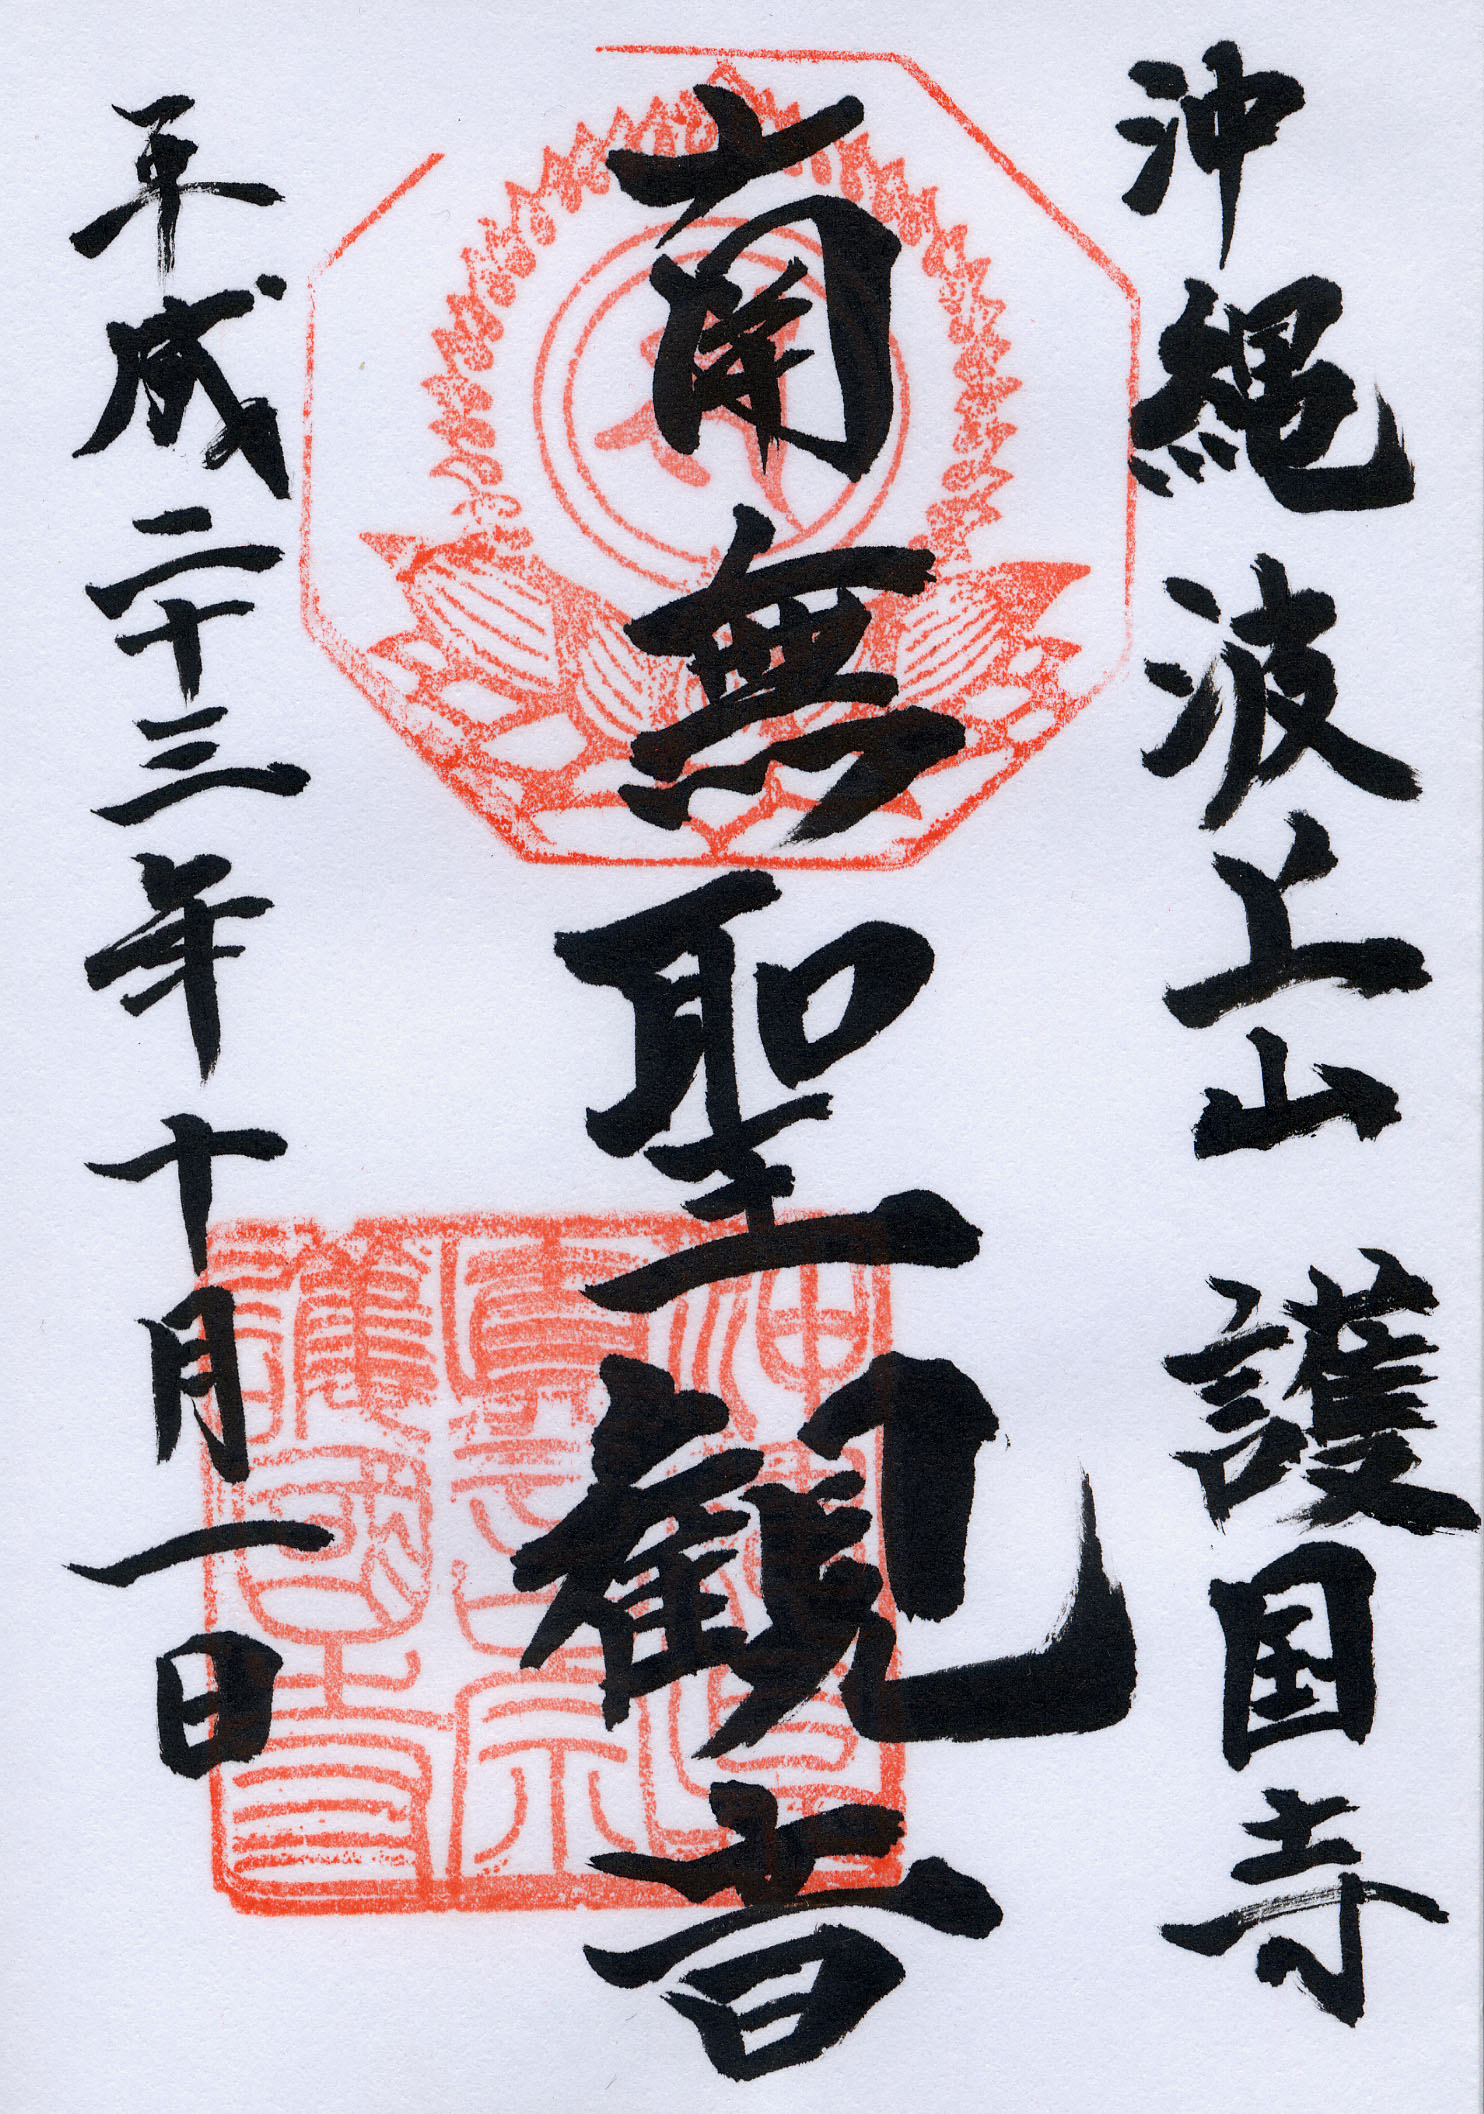 沖縄 波上山 護国寺
南無聖観音
平成二十三年十月一日
護國寺